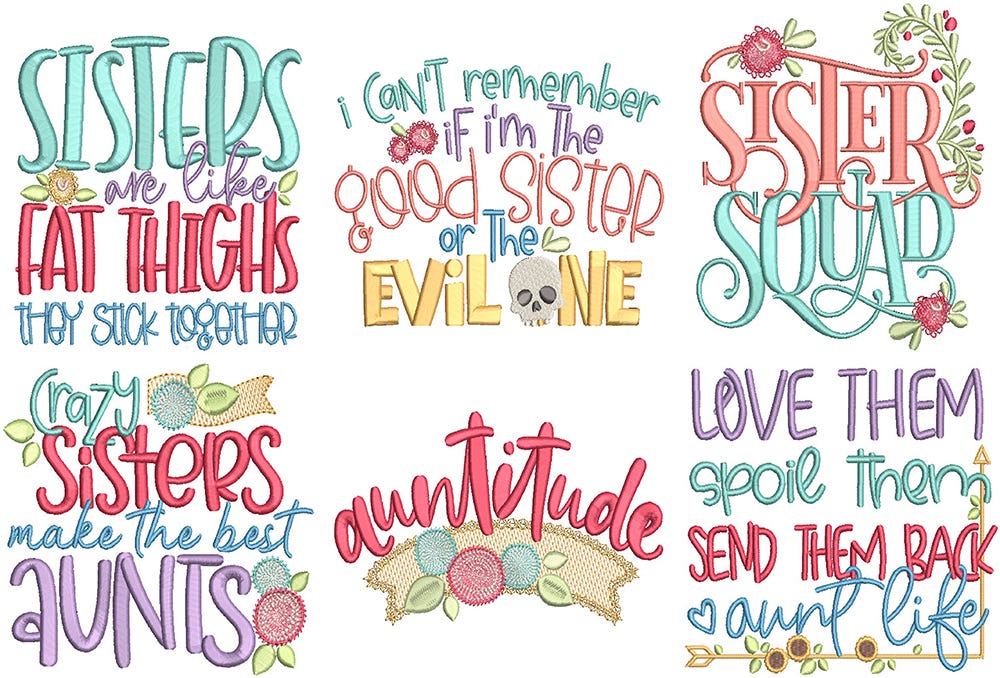 SISTERS
are like
FAT THIGHS
THEY STICK TOGETHER
i CAN'T remember
iF i'm THe
good SiSTER
or THe
EViL ONE
SISTER
SQUAD
Crazy
SiSTERS
make the best
AUNTS
auntitude
LOVE THEM
spoil them
SEND THEM BACK
aunt life